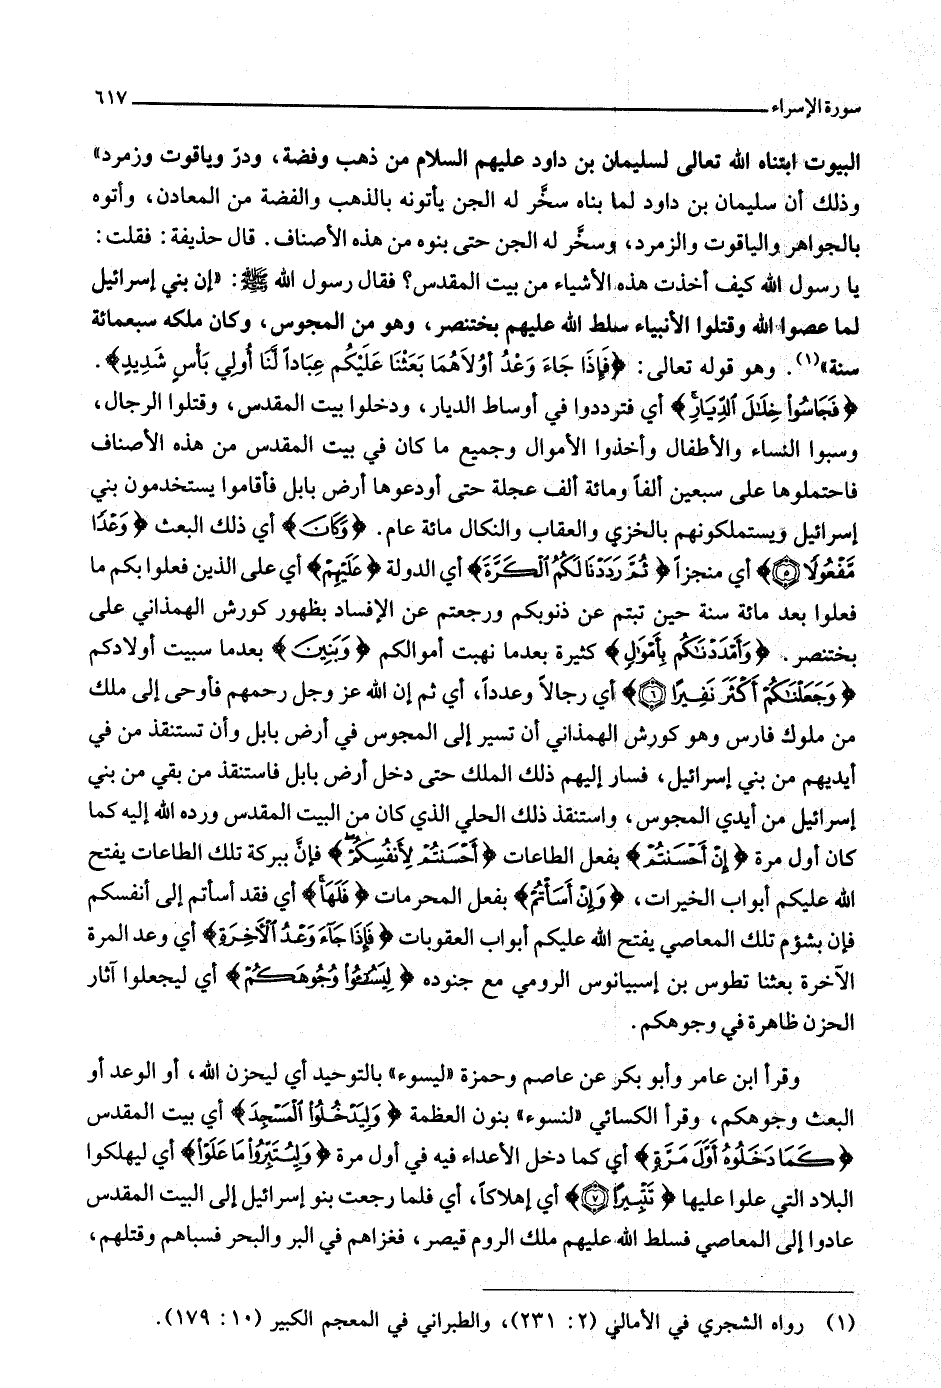 سورة الإسراء ٦١٧
البيوت ابتناه الله تعالى لسليمان بن داود عليهم السلام من ذهب وفضة، ودرّ وياقوت وزمرد»
وذلك أن سليمان بن داود لما بناه سخَّر له الجن يأتونه بالذهب والفضة من المعادن، وأتوه
بالجواهر والياقوت والزمرد، وسخَّر له الجن حتى بنوه من هذه الأصناف. قال حذيفة: فقلت:
يا رسول الله كيف أخذت هذه الأشياء من بيت المقدس؟ فقال رسول الله ﷺ: «إن بني إسرائيل
لما عصوا الله وقتلوا الأنبياء سلط الله عليهم بختنصر، وهو من المجوس، وكان ملكه سبعمائة
سنة»(١). وهو قوله تعالى: ﴿فَإِذَا جَاءَ وَعْدُ أوُلاَهُمَا بَعَثْنَا عَلَيْكُم عِبَاداً لَّنَا أُولي بَأْسٍ شَدِيدٍ﴾.
﴿فَجَاسُوا۟ خِلَـٰلَ ٱلدِّيَارِۚ﴾ أي فترددوا في أوساط الديار، ودخلوا بيت المقدس، وقتلوا الرجال،
وسبوا النساء والأطفال وأخذوا الأموال وجميع ما كان في بيت المقدس من هذه الأصناف
فاحتملوها على سبعين ألفاً ومائة ألف عجلة حتى أودعوها أرض بابل فأقاموا يستخدمون بني
إسرائيل ويستملكونهم بالخزي والعقاب والنكال مائة عام. ﴿وَكَانَ﴾ أي ذلك البعث ﴿وَعْدًا
مَّفْعُولًا ٥﴾ أي منجزاً ﴿ثُمَّ رَدَدْنَا لَكُمُ ٱلْكَرَّةَ﴾ أي الدولة ﴿عَلَيْهِمْ﴾ أي على الذين فعلوا بكم ما
فعلوا بعد مائة سنة حين تبتم عن ذنوبكم ورجعتم عن الإفساد بظهور كورش الهمذاني على
بختنصر. ﴿وَأَمْدَدْنَـٰكُم بِأَمْوَٰلٍ﴾ كثيرة بعدما نهبت أموالكم ﴿وَبَنِينَ﴾ بعدما سبيت أولادكم
﴿وَجَعَلْنَـٰكُمْ أَكْثَرَ نَفِيرًا ٦﴾ أي رجالاً وعدداً، أي ثم إن الله عز وجل رحمهم فأوحى إلى ملك
من ملوك فارس وهو كورش الهمذاني أن تسير إلى المجوس في أرض بابل وأن تستنقذ من في
أيديهم من بني إسرائيل، فسار إليهم ذلك الملك حتى دخل أرض بابل فاستنقذ من بقي من بني
إسرائيل من أيدي المجوس، واستنقذ ذلك الحلي الذي كان من البيت المقدس ورده الله إليه كما
كان أول مرة ﴿إِنْ أَحْسَنتُمْ﴾ بفعل الطاعات ﴿أَحْسَنتُمْ لِأَنفُسِكُمْۖ﴾ فإنَّ ببركة تلك الطاعات يفتح
الله عليكم أبواب الخيرات، ﴿وَإِنْ أَسَأْتُمْ﴾ بفعل المحرمات ﴿فَلَهَاۚ﴾ أي فقد أسأتم إلى أنفسكم
فإن بشؤم تلك المعاصي يفتح الله عليكم أبواب العقوبات ﴿فَإِذَا جَآءَ وَعْدُ ٱلْأَخِرَةِ﴾ أي وعد المرة
الآخرة بعثنا تطوس بن إسبيانوس الرومي مع جنوده ﴿لِيَسُـۥٓـُٔوا۟ وُجُوهَكُمْ﴾ أي ليجعلوا آثار
الحزن ظاهرة في وجوهكم.
وقرأ ابن عامر وأبو بكر عن عاصم وحمزة «ليسوء» بالتوحيد أي ليحزن الله، أو الوعد أو
البعث وجوهكم، وقرأ الكسائي «لنسوء» بنون العظمة ﴿وَلِيَدْخُلُوا۟ ٱلْمَسْجِدَ﴾ أي بيت المقدس
﴿كَمَا دَخَلُوهُ أَوَّلَ مَرَّةٍ﴾ أي كما دخل الأعداء فيه في أول مرة ﴿وَلِيُتَبِّرُوا۟ مَا عَلَوْا۟﴾ أي ليهلكوا
البلاد التي علوا عليها ﴿تَتْبِيرًا ٧﴾ أي إهلاكاً، أي فلما رجعت بنو إسرائيل إلى البيت المقدس
عادوا إلى المعاصي فسلط الله عليهم ملك الروم قيصر، فغزاهم في البر والبحر فسباهم وقتلهم،
(١) رواه الشجري في الأمالي (٢: ٢٣١)، والطبراني في المعجم الكبير (١٠: ١٧٩).